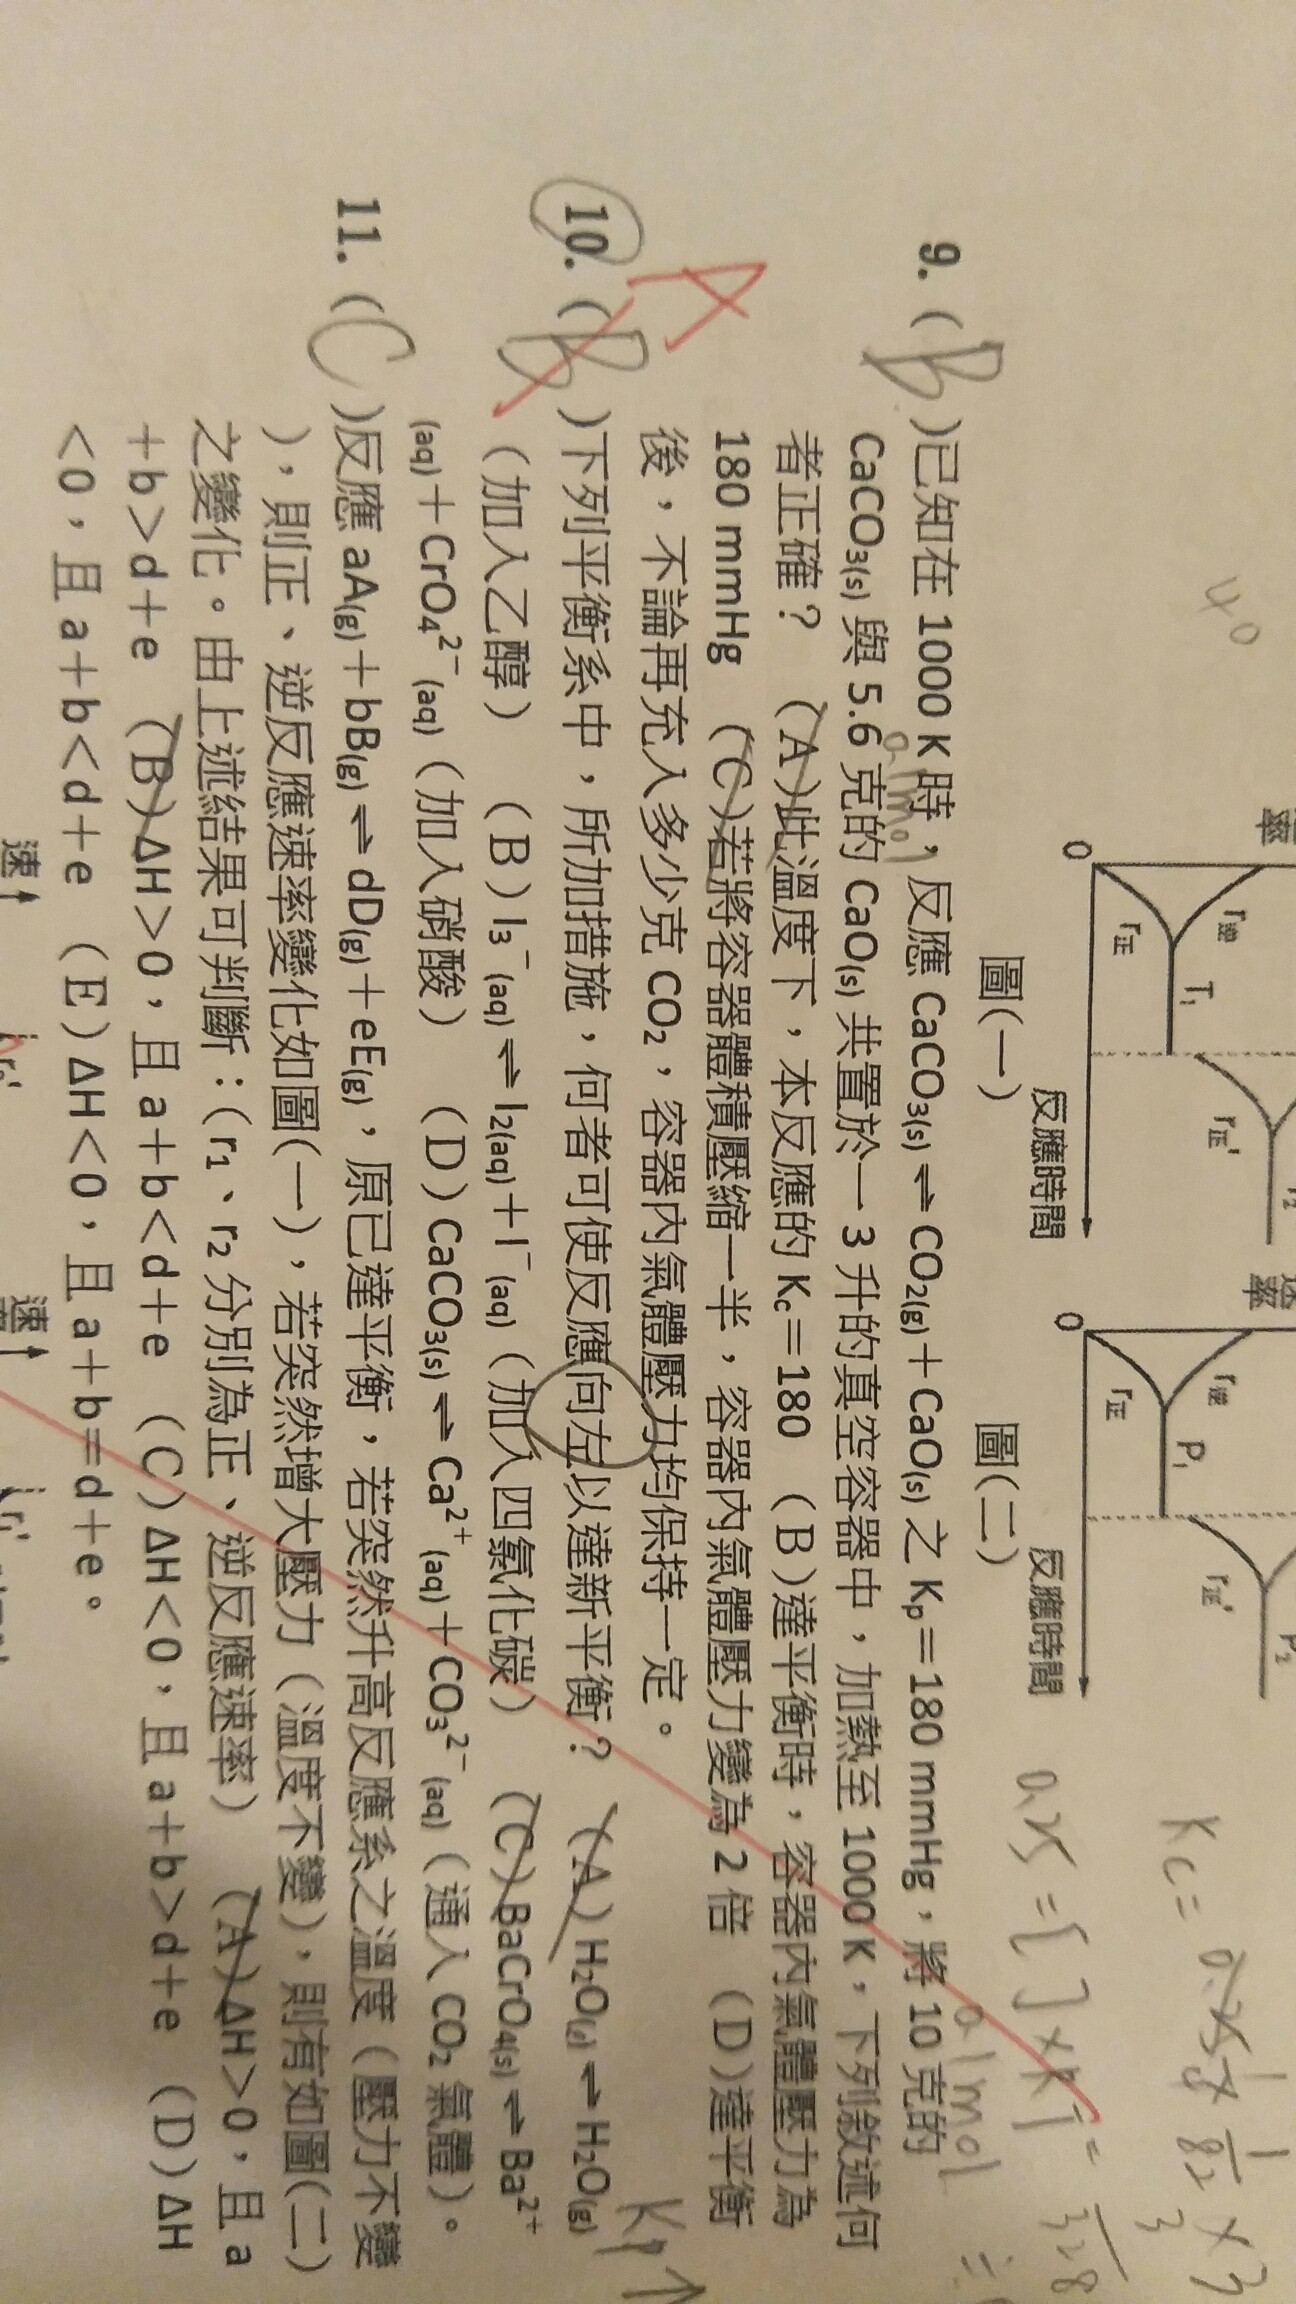 40
Kc=
0.25=[ ]×RT=
速率
r逆
r正
T₁
r正'
r₂
0
反應時間
圖(一)
速率
r逆
r正
P₁
r正'
P₂
0
反應時間
圖(二)
0.1mol
9. (B)已知在 1000 K 時，反應 CaCO₃₍s₎⇌CO₂₍g₎+CaO₍s₎之 Kp=180 mmHg，將 10 克的
0.1mol
CaCO₃₍s₎與 5.6 克的 CaO₍s₎共置於一 3 升的真空容器中，加熱至 1000 K，下列敘述何
者正確？ (A)此溫度下，本反應的 Kc=180 (B)達平衡時，容器內氣體壓力為
180 mmHg (C)若將容器體積壓縮一半，容器內氣體壓力變為 2 倍 (D)達平衡
後，不論再充入多少克 CO₂，容器內氣體壓力均保持一定。
Kp↑
A
10. (B)下列平衡系中，所加措施，何者可使反應向左以達新平衡？ (A)H₂O₍ℓ₎⇌H₂O₍g₎
（加入乙醇） (B)I₃⁻₍aq₎⇌I₂₍aq₎+I⁻₍aq₎（加入四氯化碳） (C)BaCrO₄₍s₎⇌Ba²⁺
₍aq₎+CrO₄²⁻₍aq₎（加入硝酸） (D)CaCO₃₍s₎⇌Ca²⁺₍aq₎+CO₃²⁻₍aq₎（通入 CO₂ 氣體）。
11. (C)反應 aA₍g₎+bB₍g₎⇌dD₍g₎+eE₍g₎，原已達平衡，若突然升高反應系之溫度（壓力不變
），則正、逆反應速率變化如圖(一)，若突然增大壓力（溫度不變），則有如圖(二)
之變化。由上述結果可判斷：(r₁、r₂ 分別為正、逆反應速率) (A)ΔH>0，且 a
+b>d+e (B)ΔH>0，且 a+b<d+e (C)ΔH<0，且 a+b>d+e (D)ΔH
<0，且 a+b<d+e (E)ΔH<0，且 a+b=d+e。
速
速